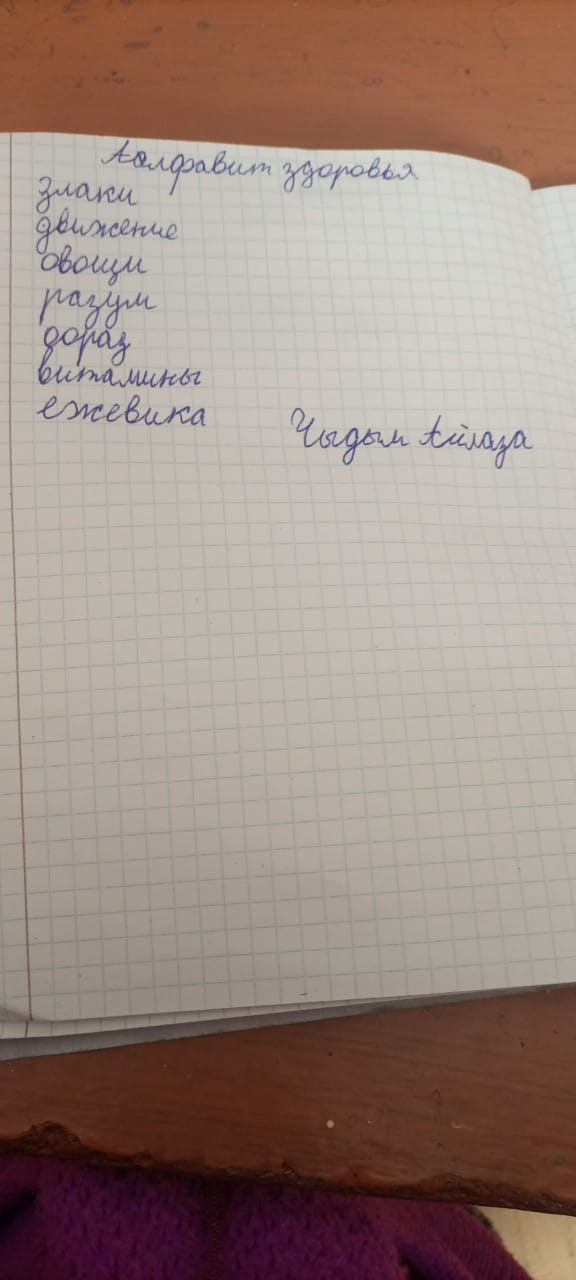 Аолфавит здоровья
злаки
движение
овощи
разум
оораз
витамины
ежевика
Чыдым Айлаза